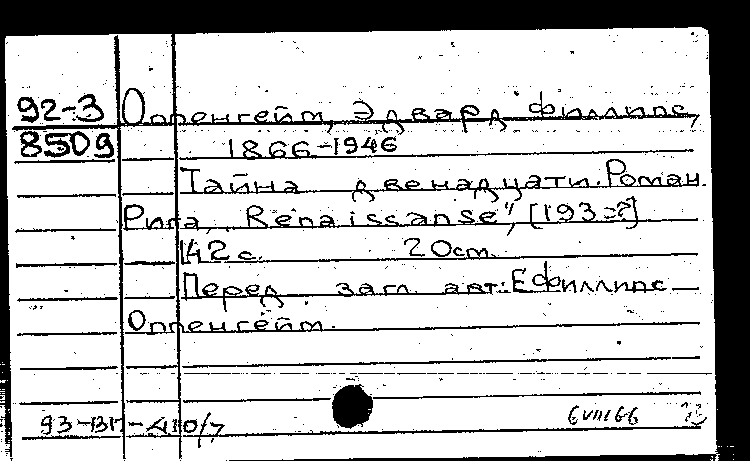 92-3 Оппенгейм, Эдвард Филлипс,
8509 1866-1946
Тайна двенадцати. Роман.
Рига, „Renaissanse", [193=?]
142 с. 20 см.
Перед загл. авт.: Е Филлипс
Оппенгейм.
93-ВП-410/7 6 VIII 66